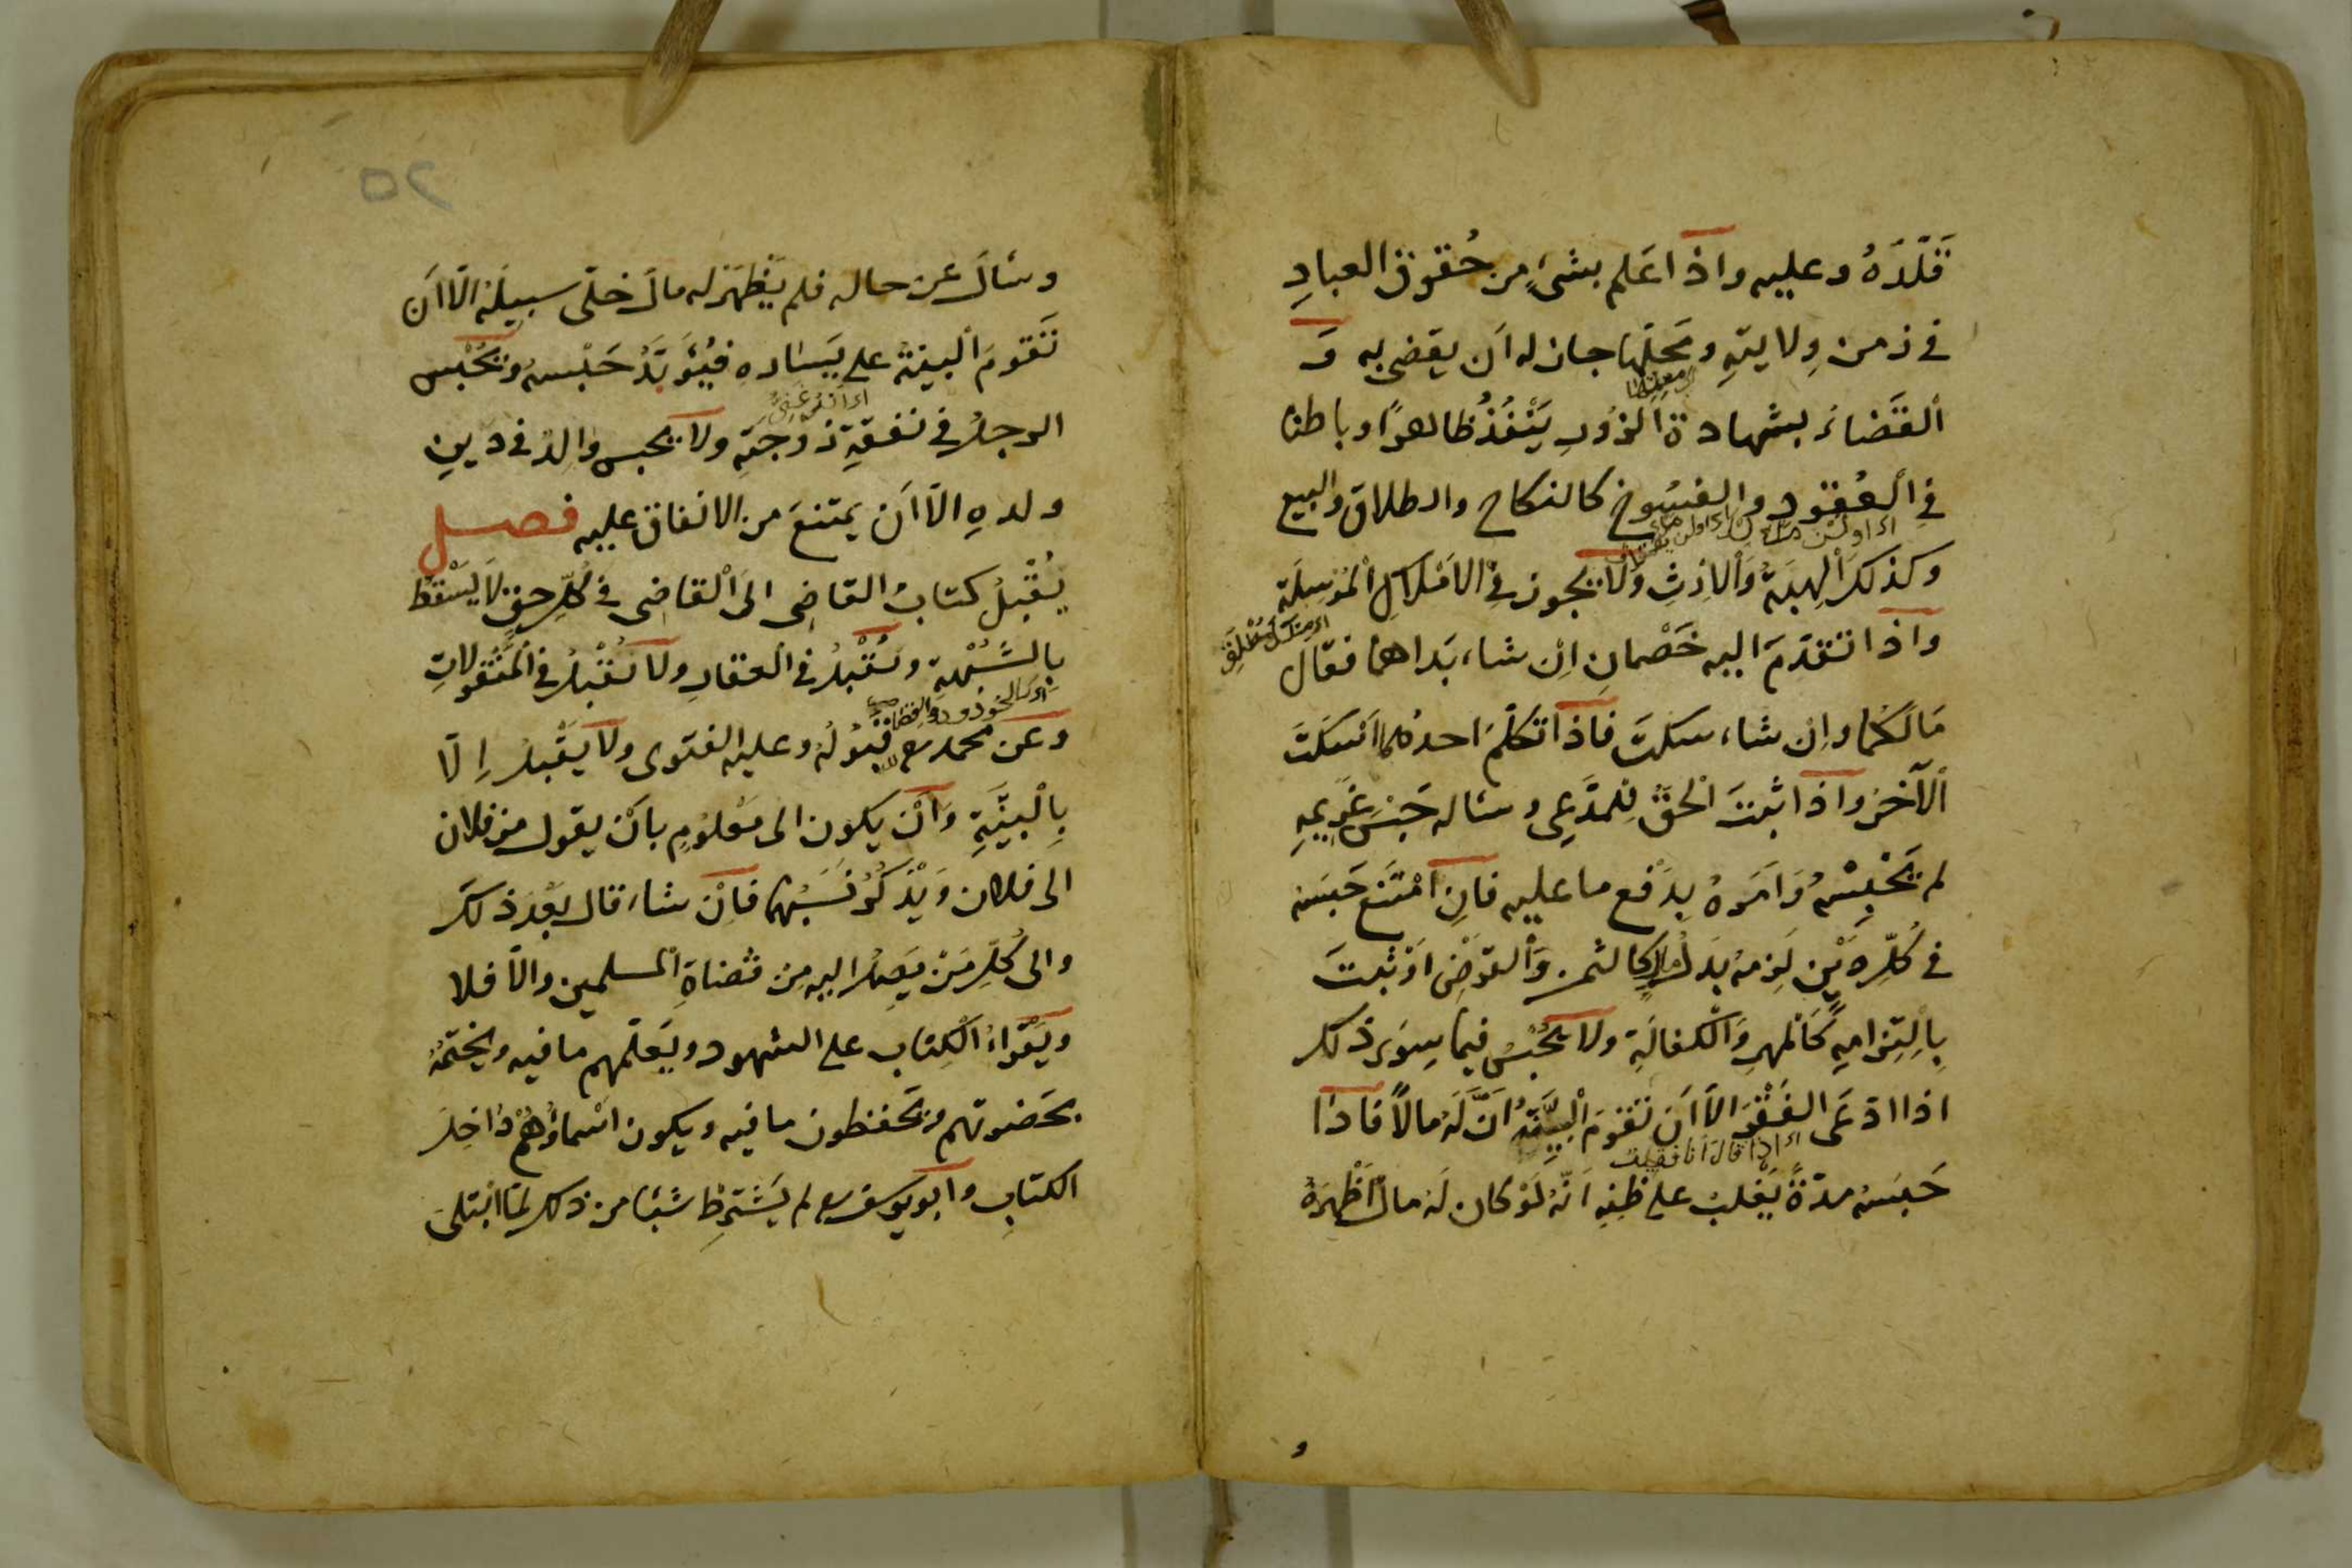 قَلَّدَهُ وعليه واذا عَلم بشئٍ من حُقوق العبادِ
في زمن وِلايتهِ ومَحلّها جاز له اَن يقضى به وَ
اَلقَضاءُ بشهادة الزُورِ يَنْفُذُ ظاهرًا وباطنا
في اَلعُقود والفسُوخ كالنكاح والطلاق والبيع
وكذلك اَلهِبَةُ وَاْلاِرْثِ ولا يجوز في الاَمْلاكِ اْلمُرْسَلَةِ
اى ملك مُطْلَق
واذا تقدَّمَ اليه خَصْمانِ اِنْ شاء بَدَاهما فقال
مَالَكُما واِن شاء سكتَ فَاذا تكلّمَ احدُهما اَسْكتَ
اْلآخرَ واذا ثبتَ الْحَقُّ لِلمدَّعِى وسئاله حَبْسَ غَرِيمِهِ
لم يَحْبِسْهُ وَامَرَهُ بِدَفْع ما عليه فانِ امْتَنَع حَبَسَه
في كُلِّ دَيْن لَزِمهُ بَدلُ مالٍ كالثمن وَاْلقَرْضِ اَوْ ثبتَ
بِالْتِزامِهِ كَالمَهرِ وَالْكفالَةِ ولا يُحْبَسُ فيما سِوَى ذلك
اذا ادّعَى الفَقْرَ الاّ اَن تقومَ اْلبَيِّنَةُ اَنَّ لَهُ مالاً فاذا
اى اذا قال انا فقير
حَبسَهُ مدّةً يَغْلِبُ على ظنِه اَنّهُ لَوْ كان لَهُ مالٌ اَظْهَرَهُ
٥٢
وسَأل عن حاله فلم يَظْهَرْ له مالٌ خلّى سبيلَه الاّ اَن
تَقومَ اْلبينةُ على يَسَاره فيُؤَبَّدُ حَبْسهُ ويُحْبَس
اى اَنّهُ غَنِىٌّ
الرجلُ في نفقَةِ زوجَتِهِ ولا يحبس والِدٌ في دَيْنِ
ولدهِ الاّ اَن يمتنعَ من الانفاق عليه فصل
يُقْبلُ كتابُ القاضِى الى اْلقاضِى في كُلِّ حقٍ لاَ يسْقط
بِالشُّبْهةِ وتُقْبلُ في العقارِ ولا تُقْبلُ في اْلمنْقولاتِ
وعن محمد رح قبُولُهُ وعليه الفتوى ولا يقْبلُ اِلاّ
بِاْلبيِّنَةِ وَاَنْ يكون الى مَعْلوُمٍ باَنْ يقول من فلان
الى فلان وَيْذكُرُ نَسَبَهُما فاِنْ شاء قال بعْدَ ذلكَ
والى كُلِّ مَنْ يَصِلُ اليه مِنْ قُضاةِ اْلمسلمين والاّ فلا
ويَقْرأُ الْكِتاب على الشهود ويَعلّمهم ما فيه ويختمُهُ
بحَضرتهم ويَحْفظون ما فيه ويكون اسْماؤُهُمْ دٰاخِلَ
الكتابِ واَبو يوسف رح لم يَشْترِطْ شيئا من ذلك لَمّا ابْتلىَ